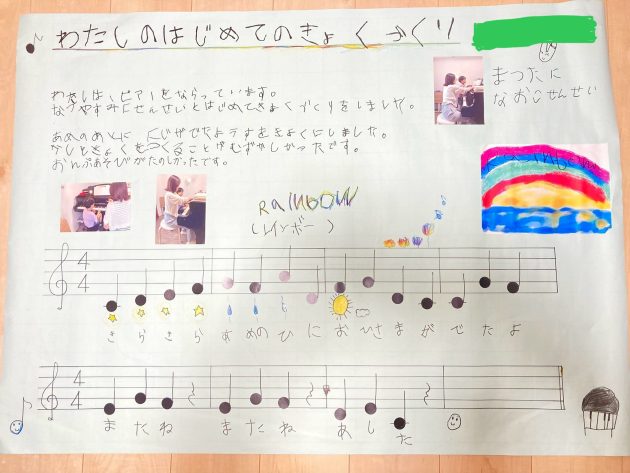 わたしのはじめてのきょくづくり
まつたに
なおこせんせい
わたしは、ピアノをならっています。
なつやすみにせんせいとはじめてきょくづくりをしました。
あめのあとに にじがでたようすをきょくにしました。
かしときょくをつくることがむずかしかったです。
おんぷあそびがたのしかったです。
RaINBOW
(レインボー)
4 4
きらきらあめのひにおひさまがでたよ
4 4
またね またね あした